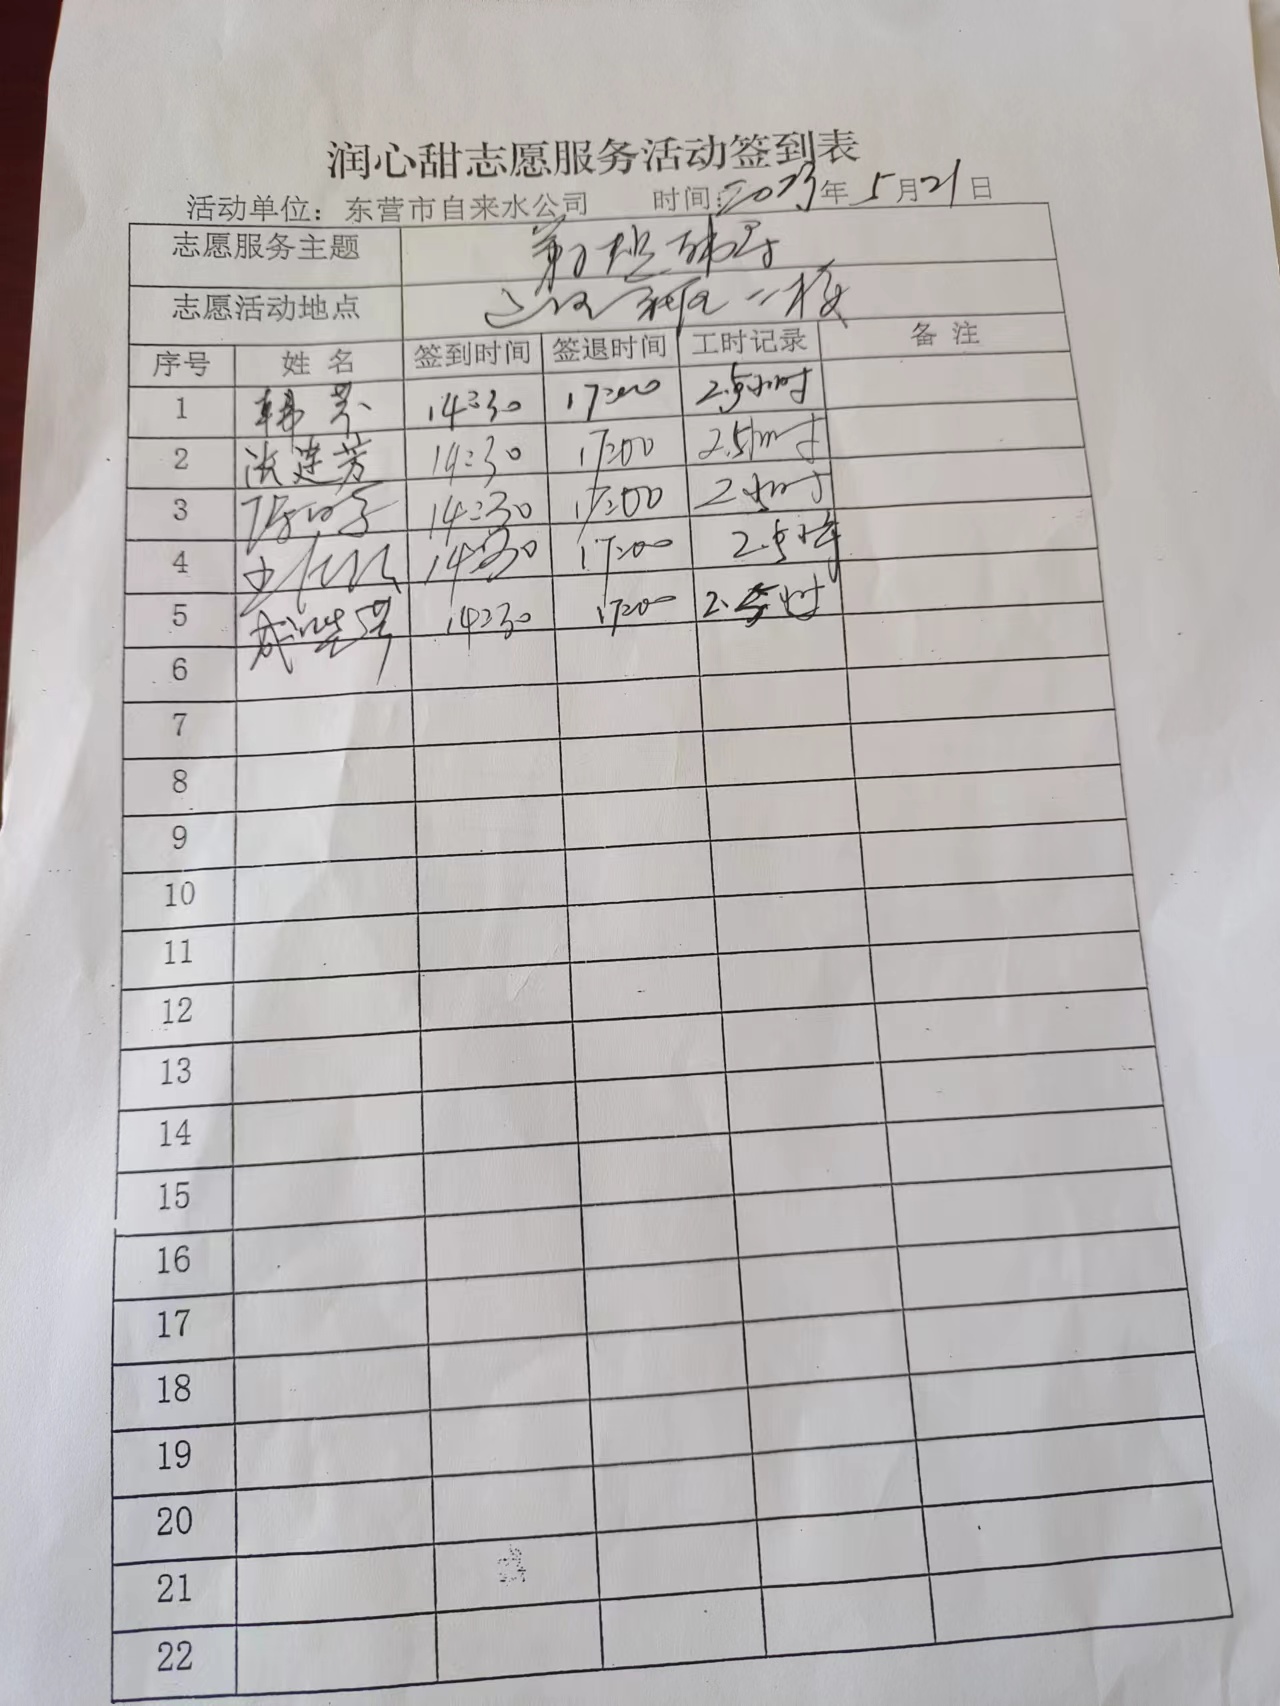 润心甜志愿服务活动签到表
活动单位：东营市自来水公司 时间：2023年5月21日
志愿服务主题
志愿活动地点
序号 姓名 签到时间 签退时间 工时记录 备注
1 韩芬 14:30 17:00 2.5小时
2 张建芳 14:30 17:00 2.5小时
3 14:30 17:00
4 14:30 17:00 2.5小时
5 14:30 17:00 2.5小时
6
7
8
9
10
11
12
13
14
15
16
17
18
19
20
21
22